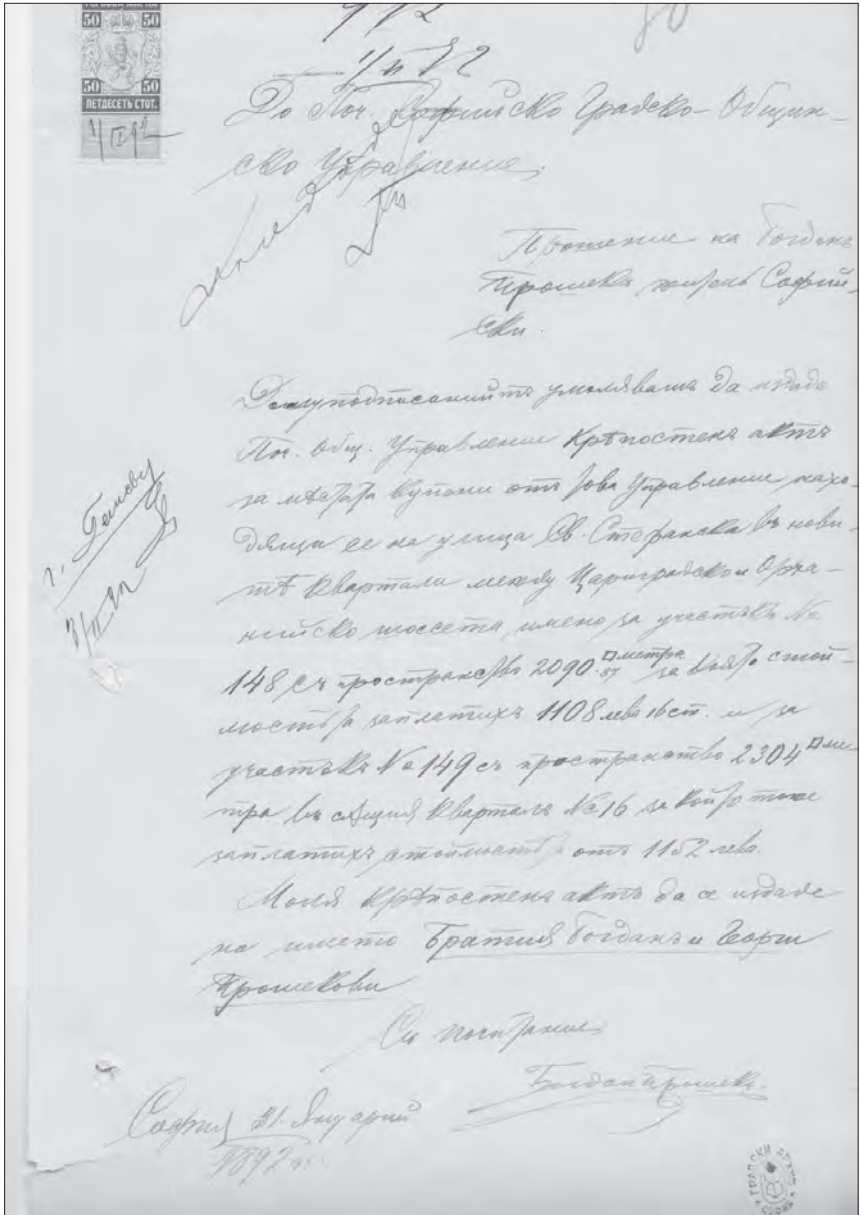 50 50
50 50
ПЕТДЕСЕТЬ СТОТ.
1/II 92
1/II 92
До Поч. Софийско Градско-Общин-
ско Управление.
Прошение на Богданъ
Прошекъ житель Софий-
ски.
Долуподписаний тъ умолявамъ да издаде
Поч. Общ. Управление Крѣпостенъ актъ
за мѣстата купени отъ това Управление нахо-
дящи се на улица Св. Стефанска въ нови-
тѣ квартали между Цариградско и Орха-
нийско шоссета, имено за участъкъ №
148 съ пространство 2090.57 □метра за който стой-
мостьта заплатихъ 1108 лева 16 ст. и за
участъкъ № 149 съ пространство 2304 □ме-
тра въ същия кварталъ № 16 за който тоже
заплатихъ стоимостьта отъ 1152 лева.
Моля крѣпостенъ актъ да се издаде
на името Братия Богданъ и Георги
Прошекови
Съ почитание:
Богдан Прошекъ.
София 31 Януарий
1892 г.
г. Ганчеву
3/II 92